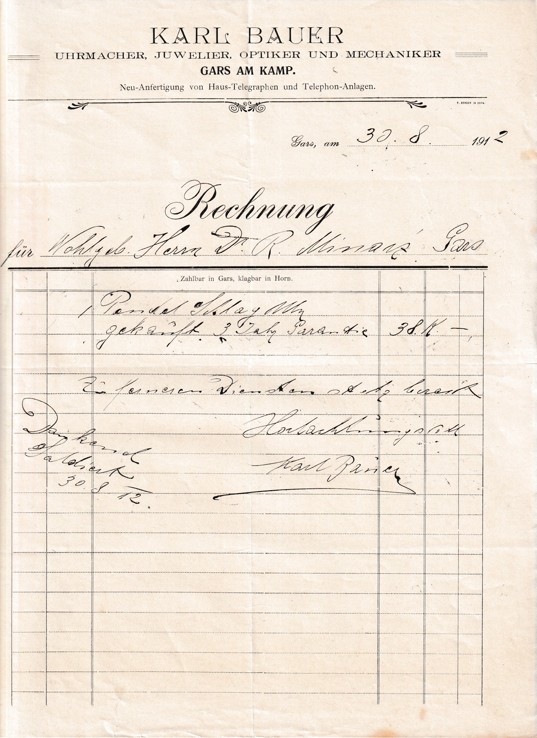 KARL BAUER
UHRMACHER, JUWELIER, OPTIKER UND MECHANIKER
GARS AM KAMP.
Neu-Anfertigung von Haus-Telegraphen und Telephon-Anlagen.
Gars, am 30. 8. 1912
Rechnung
für Wohlgeb. Herrn Dr R. Gars
Zahlbar in Gars, klagbar in Horn.
1 Pendel Schlag Uhr
gekauft 3 Jahr Garantie 38 K —
Zu ferneren Diensten stets bereit
Hochachtungsvoll
Karl Bauer
Dankend
Saldiert
30 8 12.